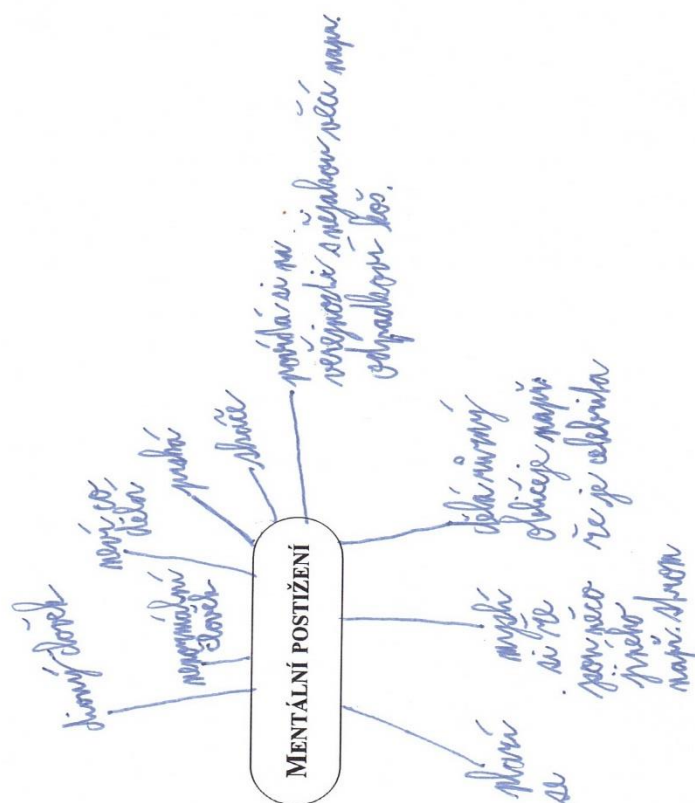 MENTÁLNÍ POSTIŽENÍ
divný člověk
nenormální
člověk
neví co
dělá
prská
skáče
povídá si na
veřejnosti s nějakou věcí např.
odpadkoví koš.
dělá ruzný
obličeje např.
že je celebrita
myslí
si že
jsou něco
jiného
např. strom
plazí
se